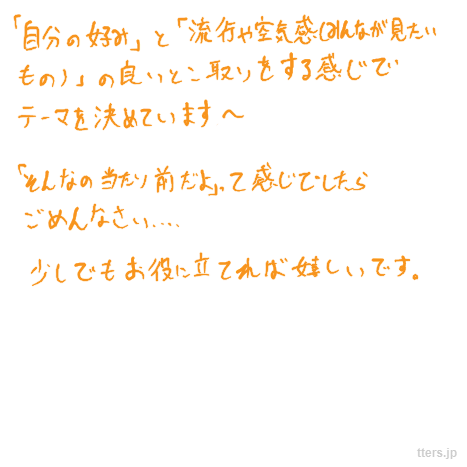 「自分の好み」と「流行や空気感(みんなが見たい
もの)」の良いとこ取りをする感じで
テーマを決めています〜
「そんなの当たり前だよ」って感じでしたら
ごめんなさい....
少しでもお役に立てれば嬉しいです。
tters.jp